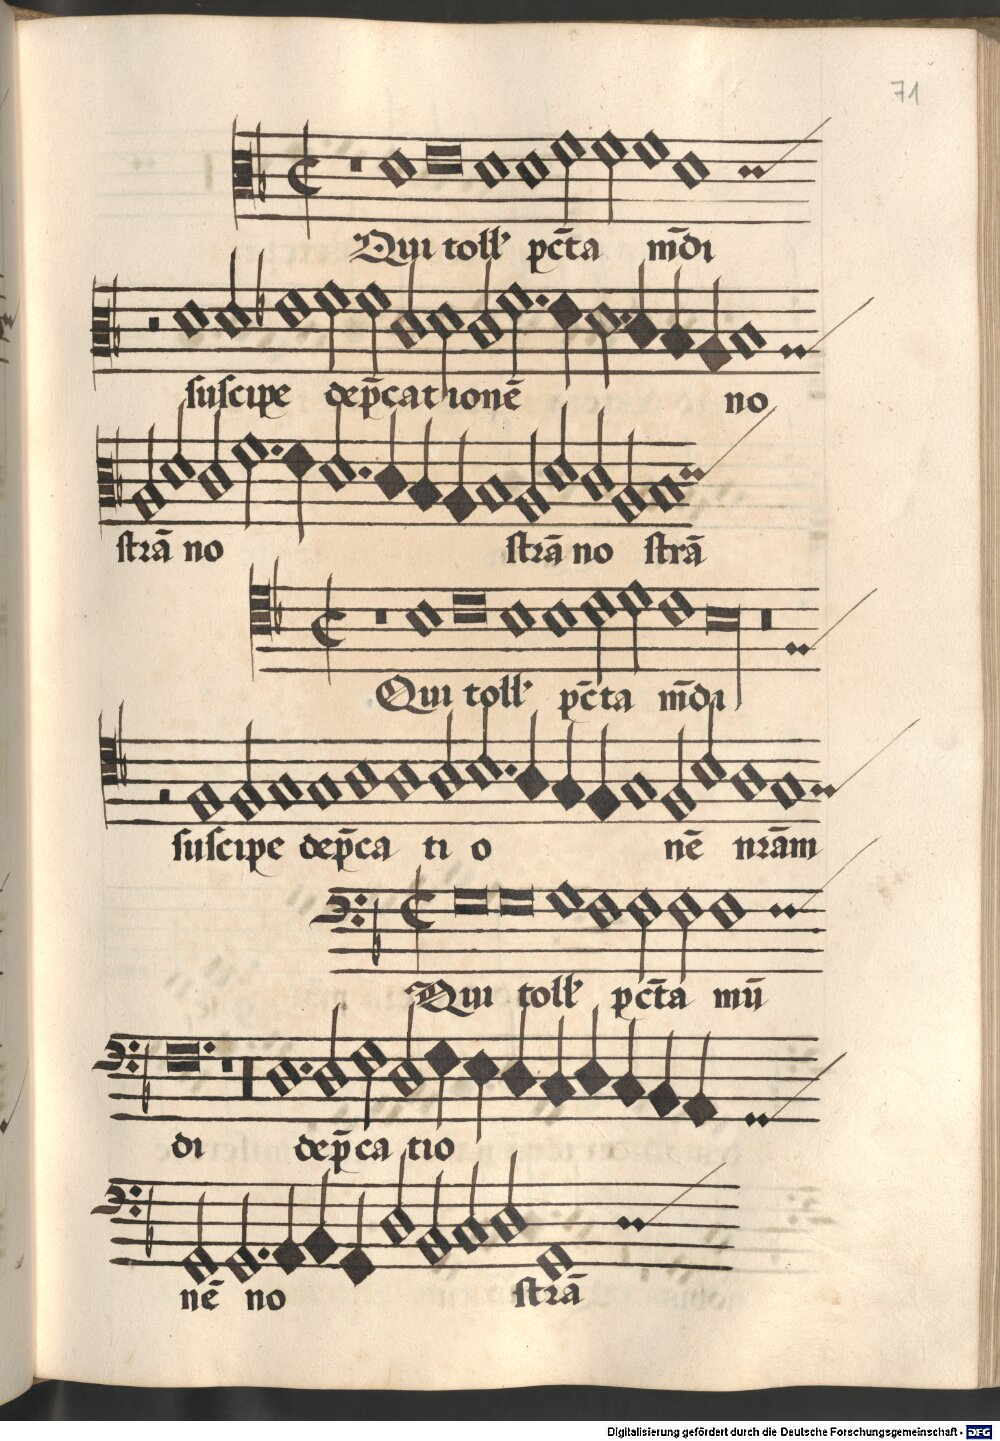 71
Qui toll pc̄ta m̄di
suscipe dep̄cationē no
strā no strā no strā
Qui toll pc̄ta m̄di
suscipe dep̄catio nē nrām
Qui toll pc̄ta mū
di dep̄catio
nē no strā
Digitalisierung gefördert durch die Deutsche Forschungsgemeinschaft - DFG